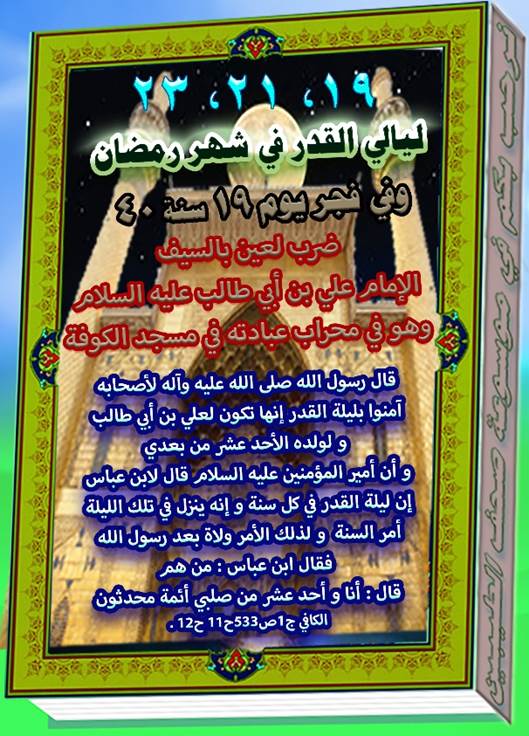 ١٩، ٢١، ٢٣
ليالي القدر في شهر رمضان
وفي فجر يوم ١٩ سنة ٤٠
ضرب لعين بالسيف
الإمام علي بن أبي طالب عليه السلام
وهو في محراب عبادته في مسجد الكوفة
قال رسول الله صلى الله عليه وآله لأصحابه
آمنوا بليلة القدر إنها تكون لعلي بن أبي طالب
و لولده الأحد عشر من بعدي
و أن أمير المؤمنين عليه السلام قال لابن عباس
إن ليلة القدر في كل سنة و إنه ينزل في تلك الليلة
أمر السنة و لذلك الأمر ولاة بعد رسول الله
فقال ابن عباس : من هم
قال : أنا و أحد عشر من صلبي أئمة محدثون
الكافي ج1ص533ح11 ح12 .
نرحب بكم في موسوعة صحف الطيبين